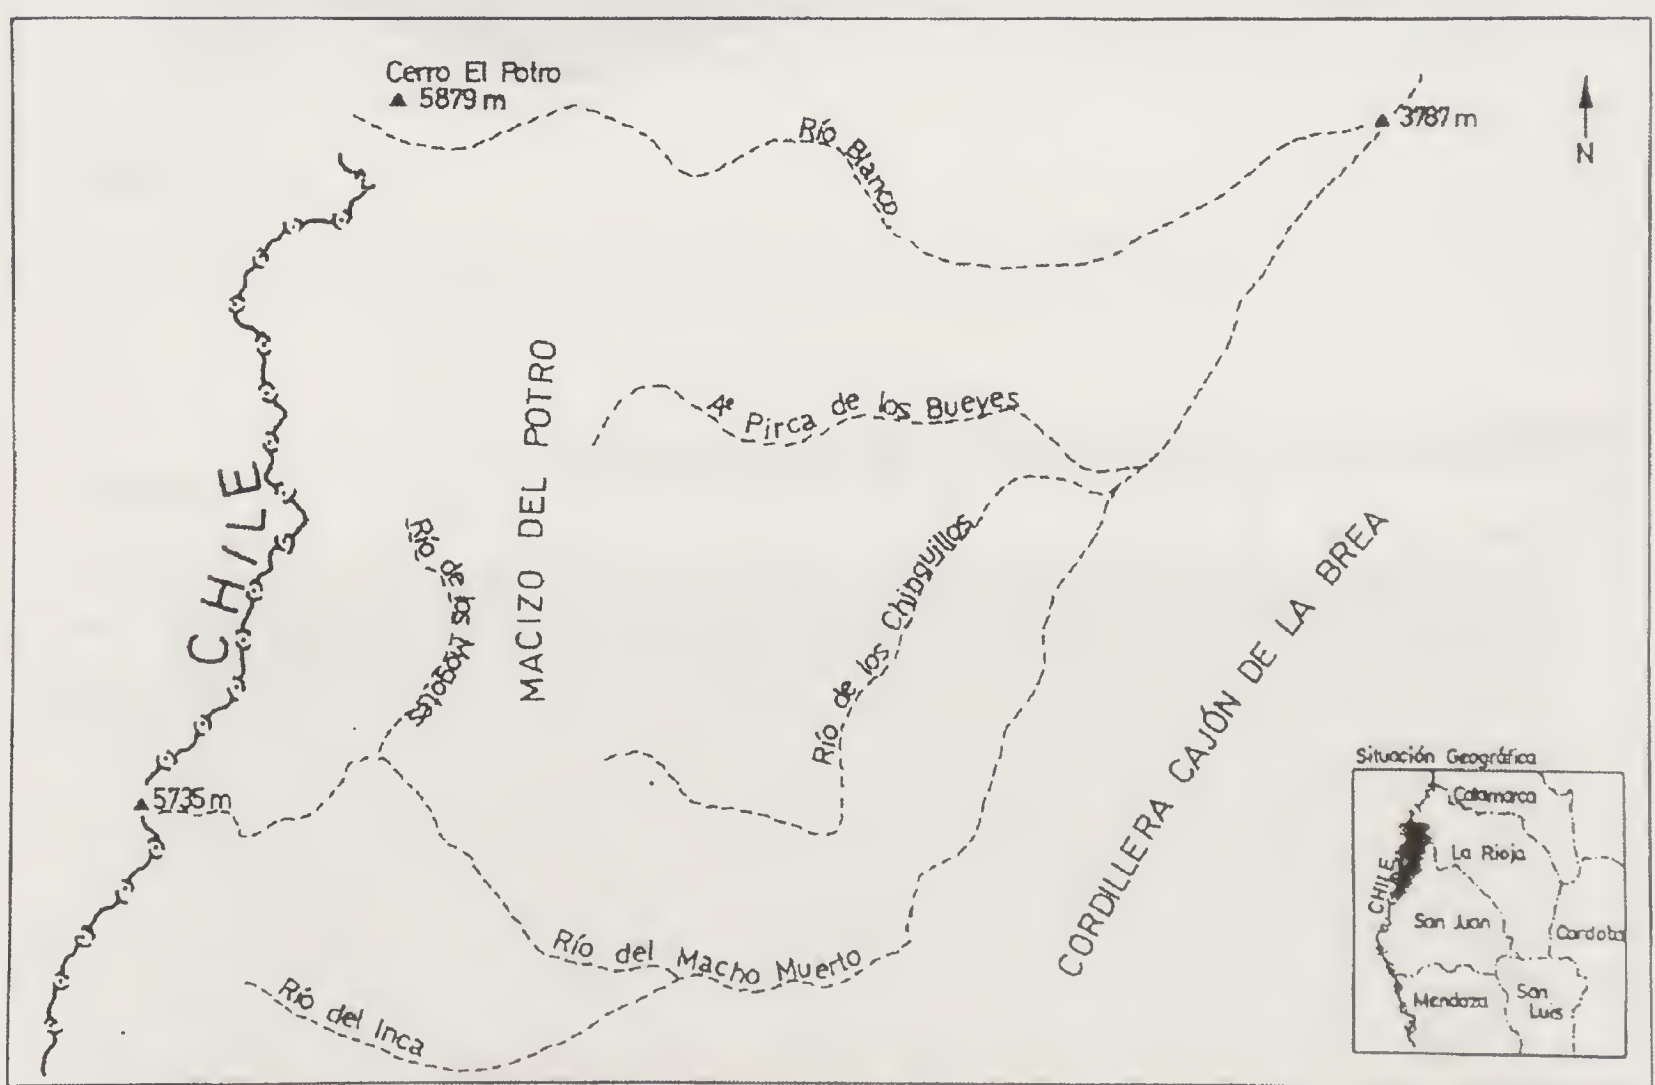 Cerro El Potro
5879 m
3787 m
N
Río Blanco
MACIZO DEL POTRO
Aº Pirca de los Bueyes
CHILE
Río de los Mogotes
Río de los Chinguillos
CORDILLERA CAJÓN DE LA BREA
5735 m
Río del Macho Muerto
Río del Inca
Situación Geográfica
Catamarca
La Rioja
CHILE
San Juan
Cordoba
Mendoza
San
Luis